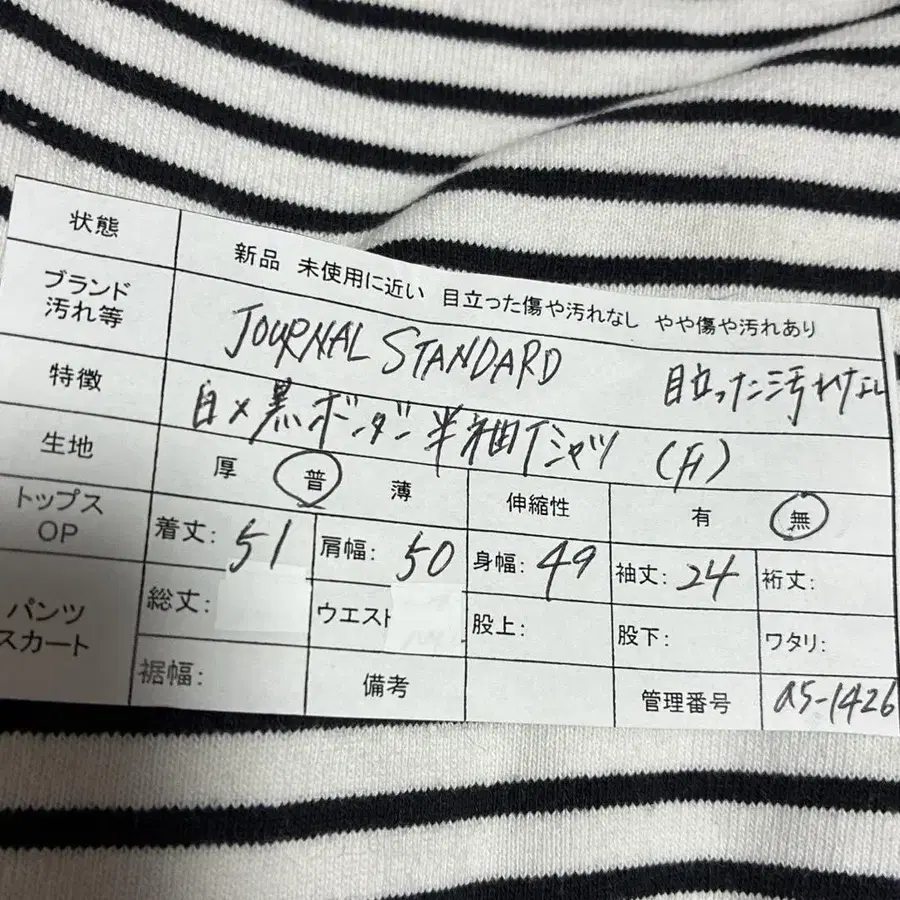 状態 新品 未使用に近い 目立った傷や汚れなし やや傷や汚れあり
ブランド
汚れ等 JOURNAL STANDARD 目立った汚れなし
特徴 白×黒ボーダー半袖Tシャツ
生地 厚 普 薄 伸縮性 有 無
トップス
OP 着丈: 51 肩幅: 50 身幅: 49 袖丈: 24 裄丈:
パンツ
スカート 総丈: ウエスト 股上: 股下: ワタリ:
裾幅: 備考 管理番号 a5-1426